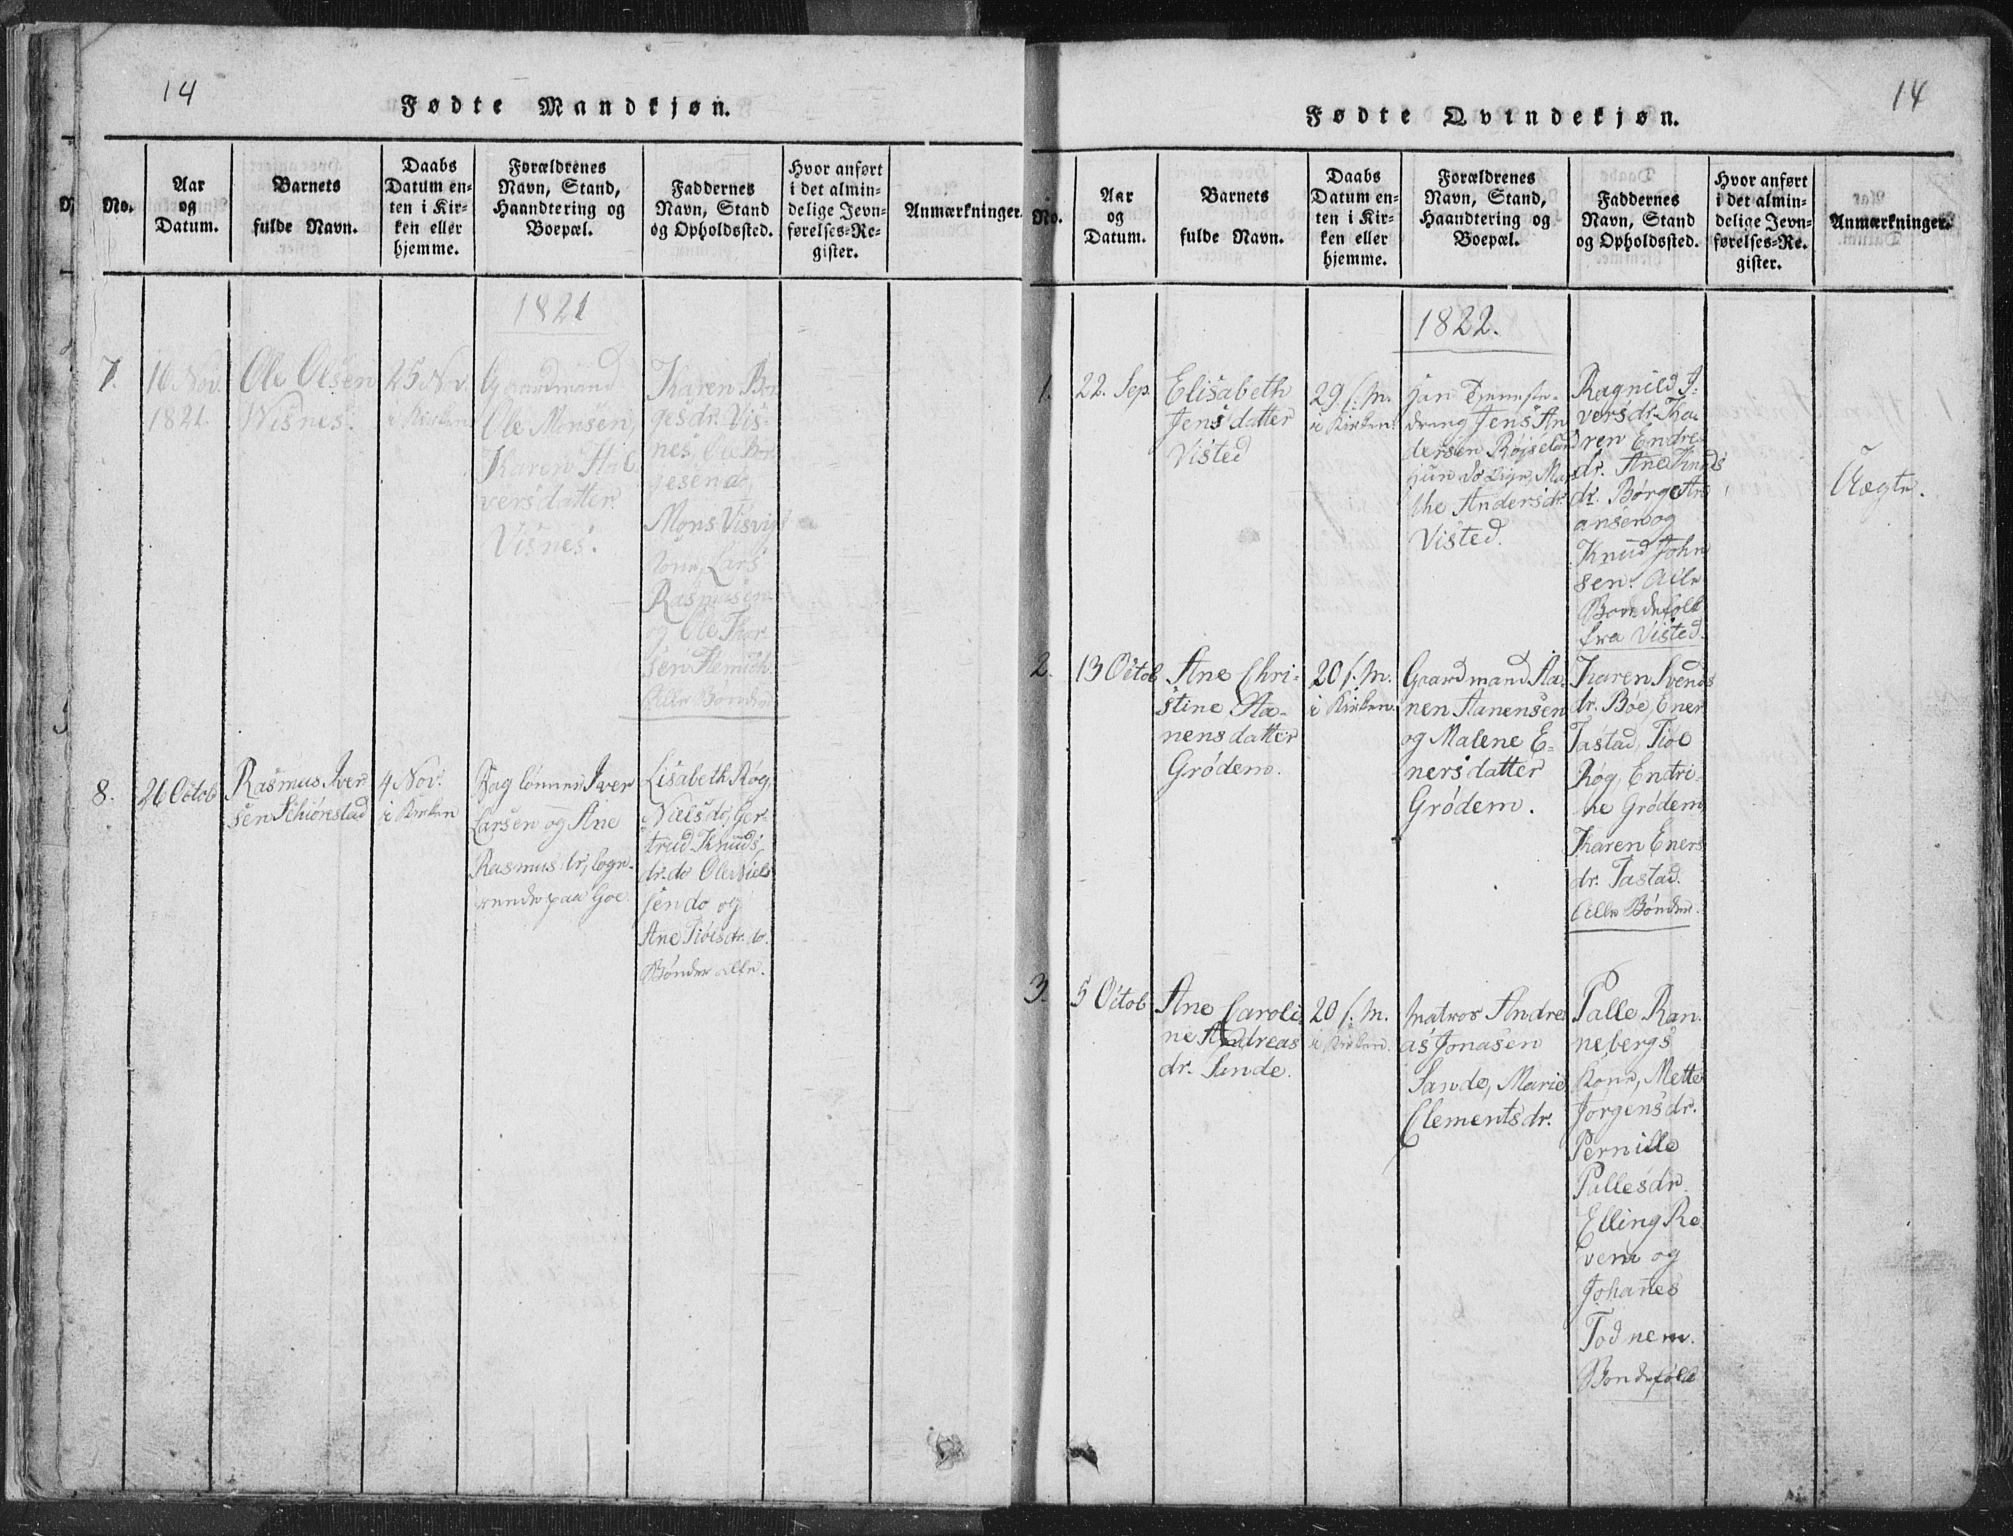 14
Fødte Mandkjøn.
No.
Aar
og
Datum.
Barnets
fulde Navn.
Daabs
Datum en-
ten i Kir-
ken eller
hjemme.
Forældrenes
Navn, Stand,
Haandtering og
Boepæl.
Faddernes
Navn, Stand
og Opholdssted.
Hvor anført
i det almin-
delige Jevn-
førelses-Re-
gister.
Anmærkninger.
1821
7.
16 Nov.
1821.
Ole Olsen
Wisnes.
25 Nov.
i Kirken
Gaardmand
Ole Monsen,
Karen Hal
versdatter
Visnes.
Karen Bør
gesdr. Vis-
nes, Ole Bør
gesen
Mons Visvigs
Kone, Lars
Rasmusen
og Ole Thor
sen
Alle Bønder
8.
26 Octob
Rasmus Iver
sen Schiørestad
4 Nov.
i Kirken
Dag lønner Iver
Larsen og Ane
Rasmusdr,
paa Goe.
Lisabeth Røg,
Nielsdo, Ger-
trud Knuds
dr. do Ole Niel
sen do og
Ane Tiølsdr. do.
Bønder alle.
14
Fødte Qvindekjøn.
No.
Aar
og
Datum.
Barnets
fulde Navn.
Daabs
Datum en-
ten i Kir-
ken eller
hjemme.
Forældrenes
Navn, Stand,
Haandtering og
Boepæl.
Faddernes
Navn, Stand
og Opholdssted.
Hvor anført
i det almin-
delige Jevn-
førelses-Re.
gister.
Anmærkninger.
1822.
1.
22. Sep.
Elisabeth
Jensdatter
Visted
29 s. M.
i Kirken
Han Tjeneste-
dreng Jens An
dersen Røjseland
Hun do Pige, Mar
the Andersdr.
Visted.
Ragnild I-
versdr. Ka
ren Endre
dr. Ane Knuds
dr. Børge And
ansen og
Knud John
sen. Alle
Bondefolk
fra Visted.
Uægte.
2.
13 Octob
Ane Chri-
stine Aa-
nensdatter
Grødem.
20 s. M.
i Kirken.
Gaardmand Aa-
nen Aanensen
og Malene E-
nersdatter
Grødem.
Karen Svends
dr. Bøe, Ener
Tastad, Tiøe
Røg, Endri-
ne Grødem,
Karen Eners
dr. Tastad.
Alle Bønder.
3.
5 Octob
Ane Caroli
ne Andreas
dr. Sande.
20 s. M.
i Kirken.
Matros Andre
as Jonasen
Sande, Marie
Clementsdr.
Palle Ran-
nebergs
Kone, Mette
Jørgensdr.
Pernille
Pallesdr
Elling Re
vem og
Johanes
Todnem.
Bondefolk